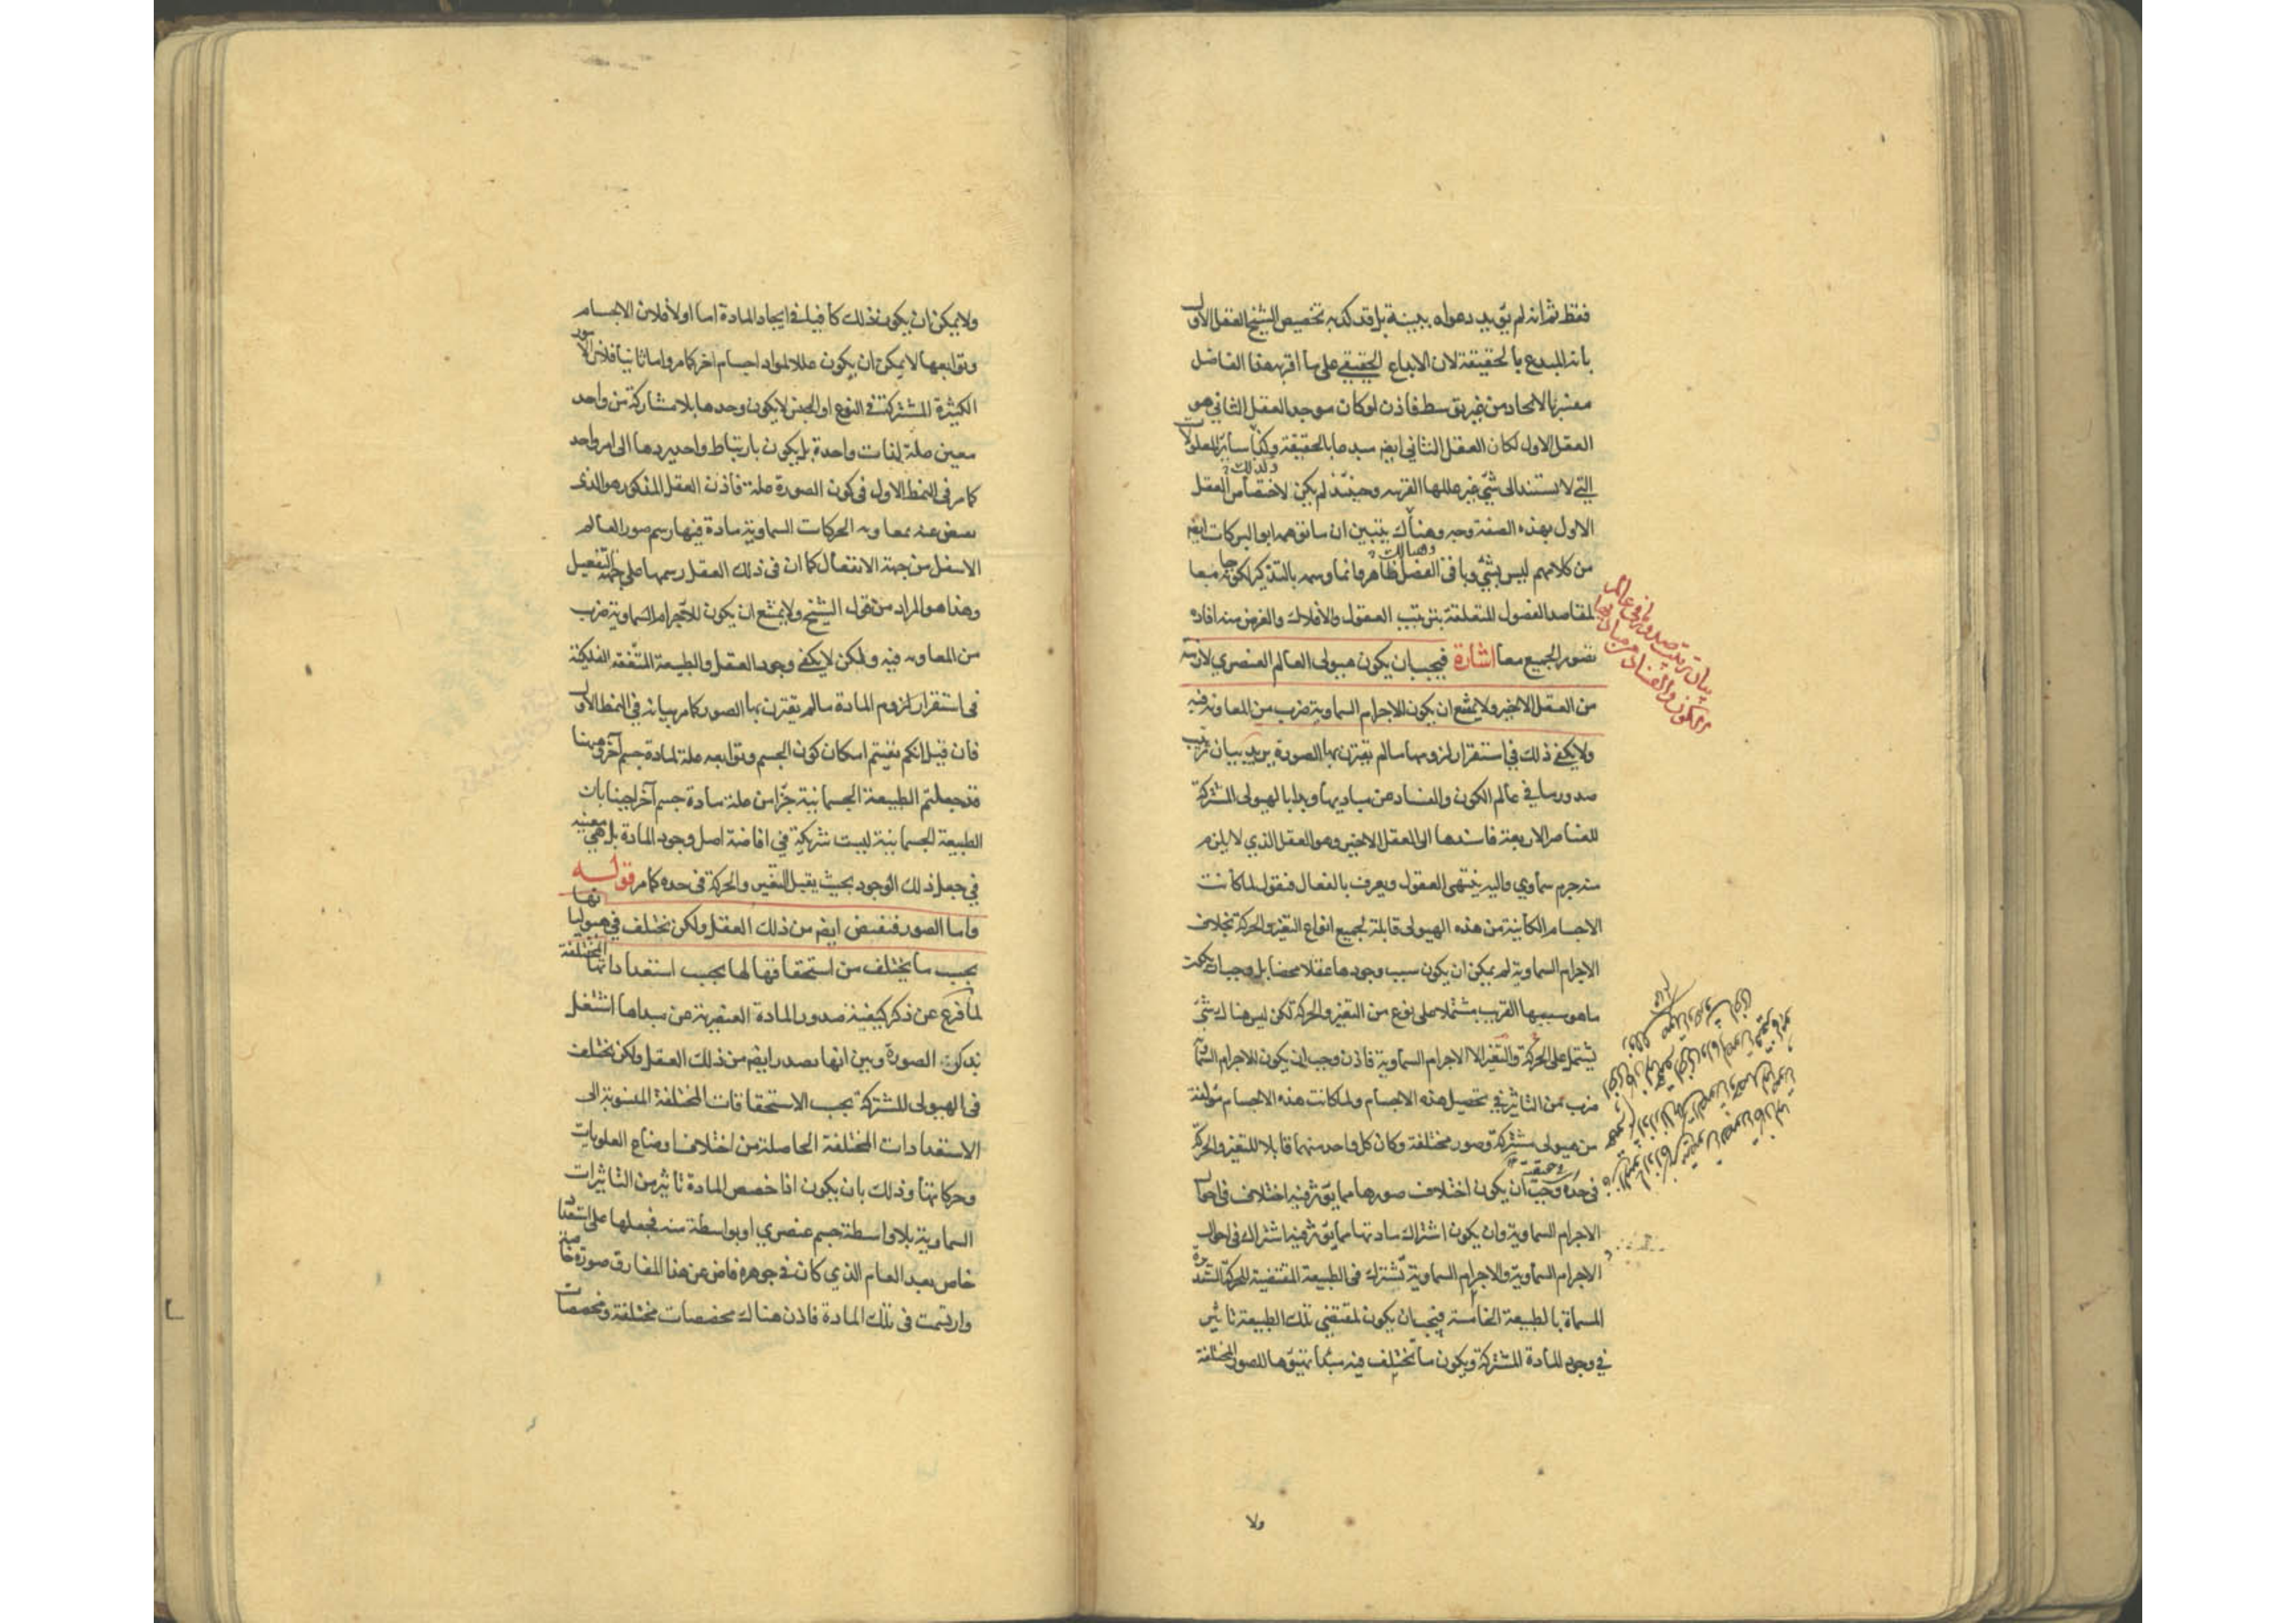 فقط ثم انه لم يؤيد دعواه ببينة بل قد كذبه تخصيص الشيخ العقل الاول
بانه المبدع بالحقيقة لان الابداع الحقيقي على ما اقر به هذا الفاضل
معتبر بالايجاد من غير توسط فاذن لو كان موجد العقل الثاني هو
العقل الاول لكان العقل الثاني ايضا مبدعا بالحقيقة وكذا سائر المعلولات
التي لا يستند الى شئ غير عللها القريبة وحينئذ لم يكن لاختصاص العقل
الاول بهذه الصفة وجه وهناك يتبين ان ما توهمه ابو البركات ايضا
من كلامهم ليس بشئ وباقى الفصل ظاهر وانما وسمه بالتذكير لكونه جامعا
لمقاصد الفصول المتعلقة بترتيب العقول والافلاك والغرض منه افادة
تصور الجميع معا اشارة فيجب ان يكون هيولى العالم العنصري لازمة
من العقل الاخير ولا يمتنع ان يكون للاجرام السماوية ضرب من المعاونة فيه
ولا يكفي ذلك في استقرار لزومها ما لم يقترن بها الصورة يريد بيان ترتيب
صدور ما في عالم الكون والفساد عن مباديها وبدا بالهيولى المشتركة
للعناصر الاربعة فاسندها الى العقل الاخير وهو العقل الذي لا يلزم
منه جرم سماوي واليه ينتهى العقول ويعرف بالفعال فنقول لما كانت
الاجسام الكائنة من هذه الهيولى قابلة لجميع انواع التغير والحركة بخلاف
الاجرام السماوية لم يمكن ان يكون سبب وجودها عقلا محضا بل وجب ان يكون
ما هو سببها القريب مشتملا على نوع من التغير والحركة لكن ليس هناك شئ
يشتمل على الحركة والتغير الا الاجرام السماوية فاذن وجب ان يكون للاجرام السماوية
ضرب من التاثير في تحصيل هذه الاجسام ولما كانت هذه الاجسام مؤلفة
من هيولى مشتركة وصور مختلفة وكان كل واحد منهما قابلا للتغير والحركة
في حده وجب ان يكون اختلاف صورها مما يؤثر فيه اختلاف في احوال
الاجرام السماوية وان يكون اشتراك مادتها مما يؤثر فيه اشتراك في احوال
الاجرام السماوية والاجرام السماوية تشترك في الطبيعة المقتضية للحركة المستديرة
المسماة بالطبيعة الخامسة فيجب ان يكون لمقتضى تلك الطبيعة تاثير
في وجود المادة المشتركة ويكون ما تختلف فيه مبدأ تهيؤها للصور المختلفة
بيان ترتيب صدور ما في عالم
الكون والفساد عن مباديها
ولا
ولا يمكن ان يكون ذلك كافيا في ايجاد المادة اما اولا فلان الاجسام
وتوابعها لا يمكن ان يكون عللا لمواد اجسام اخر كما مر واما ثانيا فلان الامور
الكثيرة المشتركة في النوع او الجنس لا يكون وحدها بلا مشاركة من واحد
معين علة لذات واحدة بل يكون بارتباط واحد يردها الى امر واحد
كما مر في النمط الاول في كون الصورة علة فاذن العقل المذكور هو الذى
يفيض عنه بمعاونة الحركات السماوية مادة فيها رسم صور العالم
الاسفل من جهة الانفعال كما ان في ذلك العقل رسمها على جهة التفعيل
وهذا هو المراد من قول الشيخ ولا يمتنع ان يكون للاجرام السماوية ضرب
من المعاونة فيه ولكن لا يكفي وجود العقل والطبيعة المتفقة الفلكية
في استقرار لزوم المادة ما لم يقترن بها الصور كما مر بيانه في النمط الاول
فان قيل انكم نفيتم امكان كون الجسم وتوابعه علة لمادة جسم آخر وههنا
قد جعلتم الطبيعة الجسمانية جزا من علة مادة جسم آخر اجيبا بان
الطبيعة الجسمانية ليست شريكة في افاضة اصل وجود المادة بل هي معينة
في جعل ذلك الوجود بحيث يقبل التغير والحركة في حده كما مر قوله
واما الصور فتفيض ايضا من ذلك العقل ولكن تختلف في هيولياتها
بحسب ما يختلف من استحقاقها لها بحسب استعداداتها المختلفة
لما فرغ عن ذكر كيفية صدور المادة العنصرية عن مبداها اشتغل
بذكر الصورة وبين انها تصدر ايضا من ذلك العقل ولكن تختلف
في الهيولى المشتركة بحسب الاستحقاقات المختلفة المنسوبة الى
الاستعدادات المختلفة الحاصلة من اختلاف اوضاع العلويات
وحركاتها وذلك بان يكون اذا خصص المادة تاثير من التاثيرات
السماوية بلا واسطة جسم عنصري او بواسطة منه فجعلها على استعداد
خاص بعد العام الذي كان في جوهره فاض عن هذا المفارق صورة خاصة
وارتسمت في تلك المادة فاذن هناك مخصصات مختلفة ومخصصات